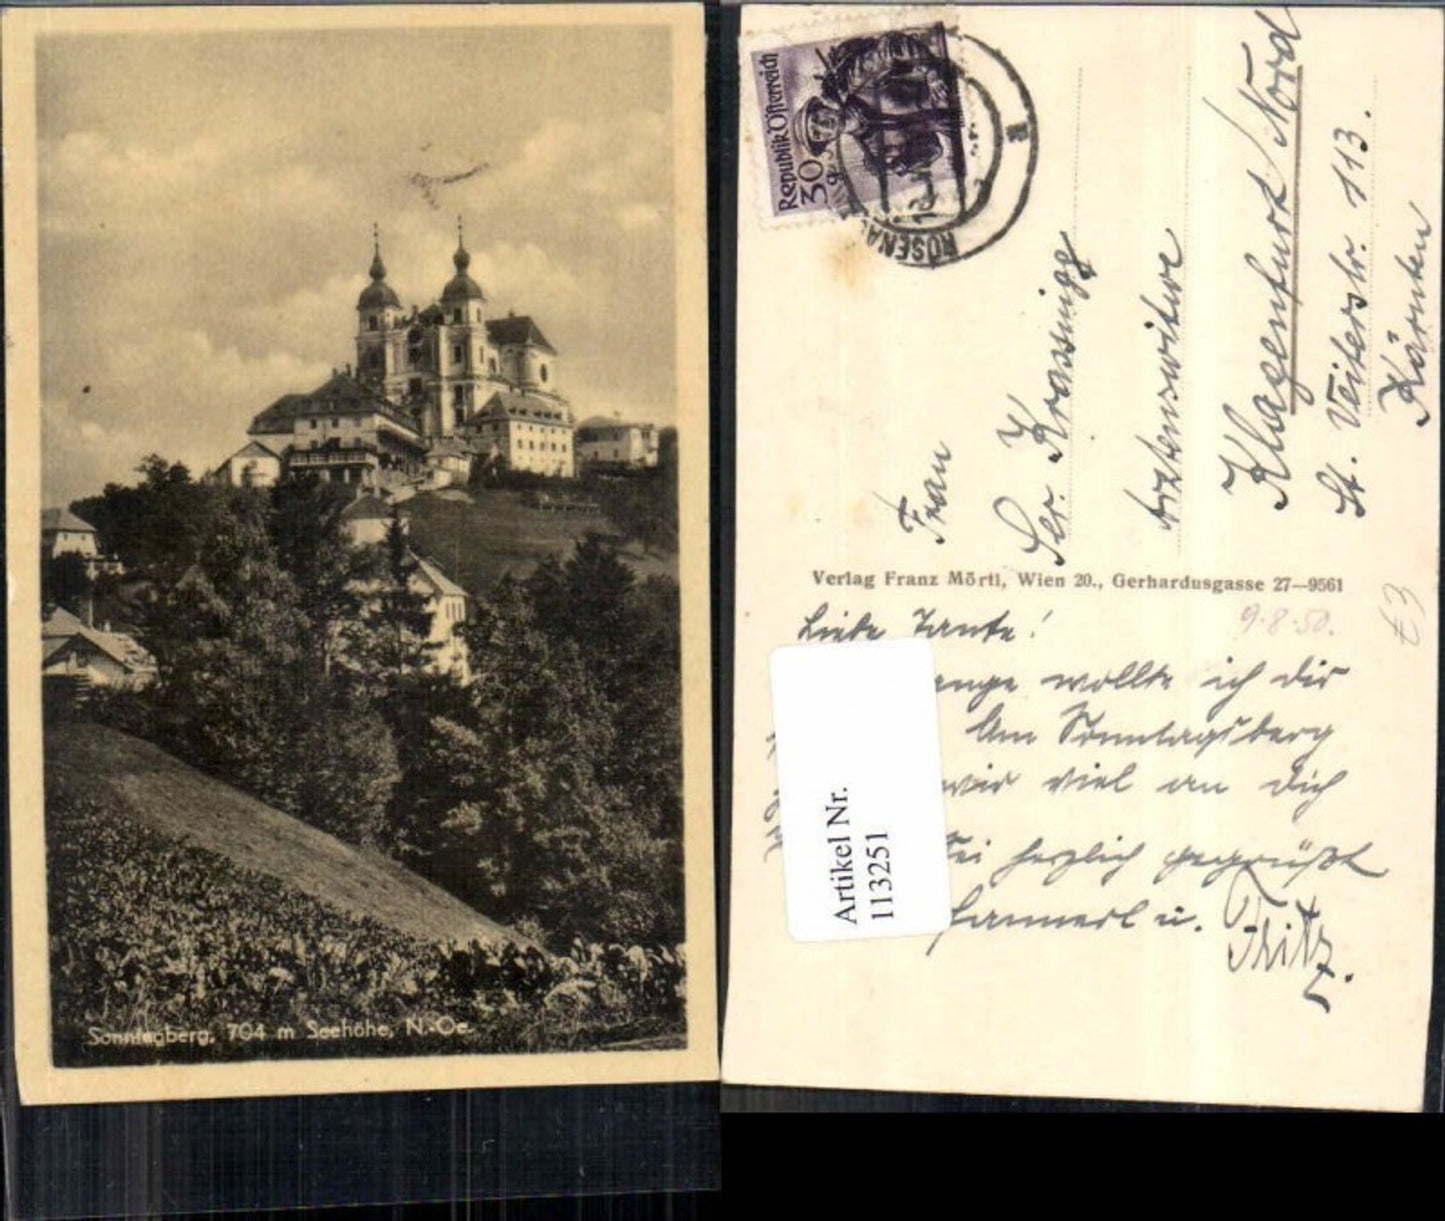 Sonntagberg, 704 m Seehöhe, N.-Oe.
Republik Österreich
30
g
ROSENAU
Frau
Ser. Krassnigg
Arztenswitwe
Klagenfurt Nord
St. Veiterstr. 113.
Kärnten
Verlag Franz Mörtl, Wien 20., Gerhardusgasse 27—9561
9.8.50.
€3
Liebe Tante!
ange wollte ich dir
Am Sonntagsberg
wir viel an Dich
Sei herzlich gegrüßt
Hannerl u. Fritz.
Artikel Nr.
113251